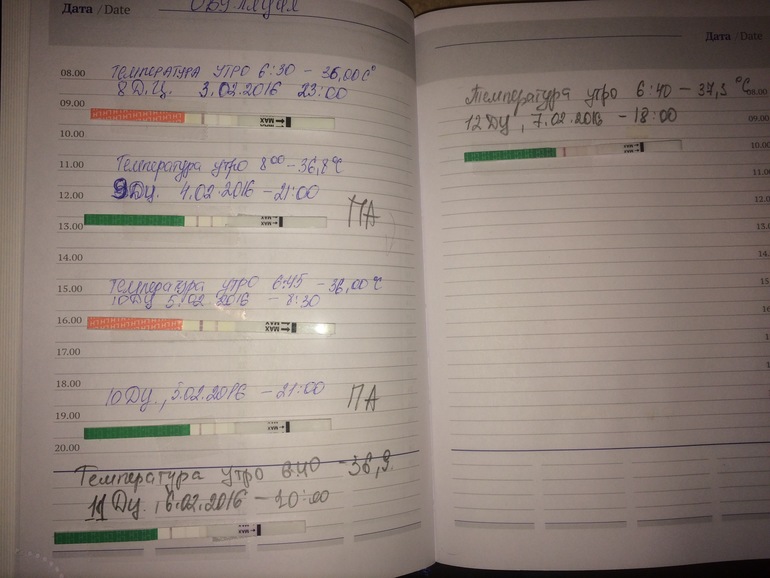 Дата / Date
ОВУЛЯЦИЯ
08.00 Температура утро 6:30 – 36,00 С°
8 Д.Ц. 3.02.2016 23:00
09.00
MAX
10.00
11.00 Температура утро 8⁰⁰ – 36,8°С
12.00 9 ДЦ. 4.02.2016 – 21:00
ПА
13.00
MAX
14.00
15.00 Температура утро 6:45 – 36,00°С
10 ДЦ 5.02.2016 – 8:30
16.00
MAX
17.00
18.00 10 ДЦ., 5.02.2016 – 21:00 ПА
19.00
MAX
20.00
Температура утро 6:40 – 36,9.
11 ДЦ., 6.02.2016 – 20:00
MAX
Дата / Date
Температура утро 6:40 – 37,3 °С 08.00
12 ДЦ, 7.02.2016 – 18:00 09.00
10.00
11.00
12.0
13.0
14.0
15.0
16.0
17.0
18.
19.
20.